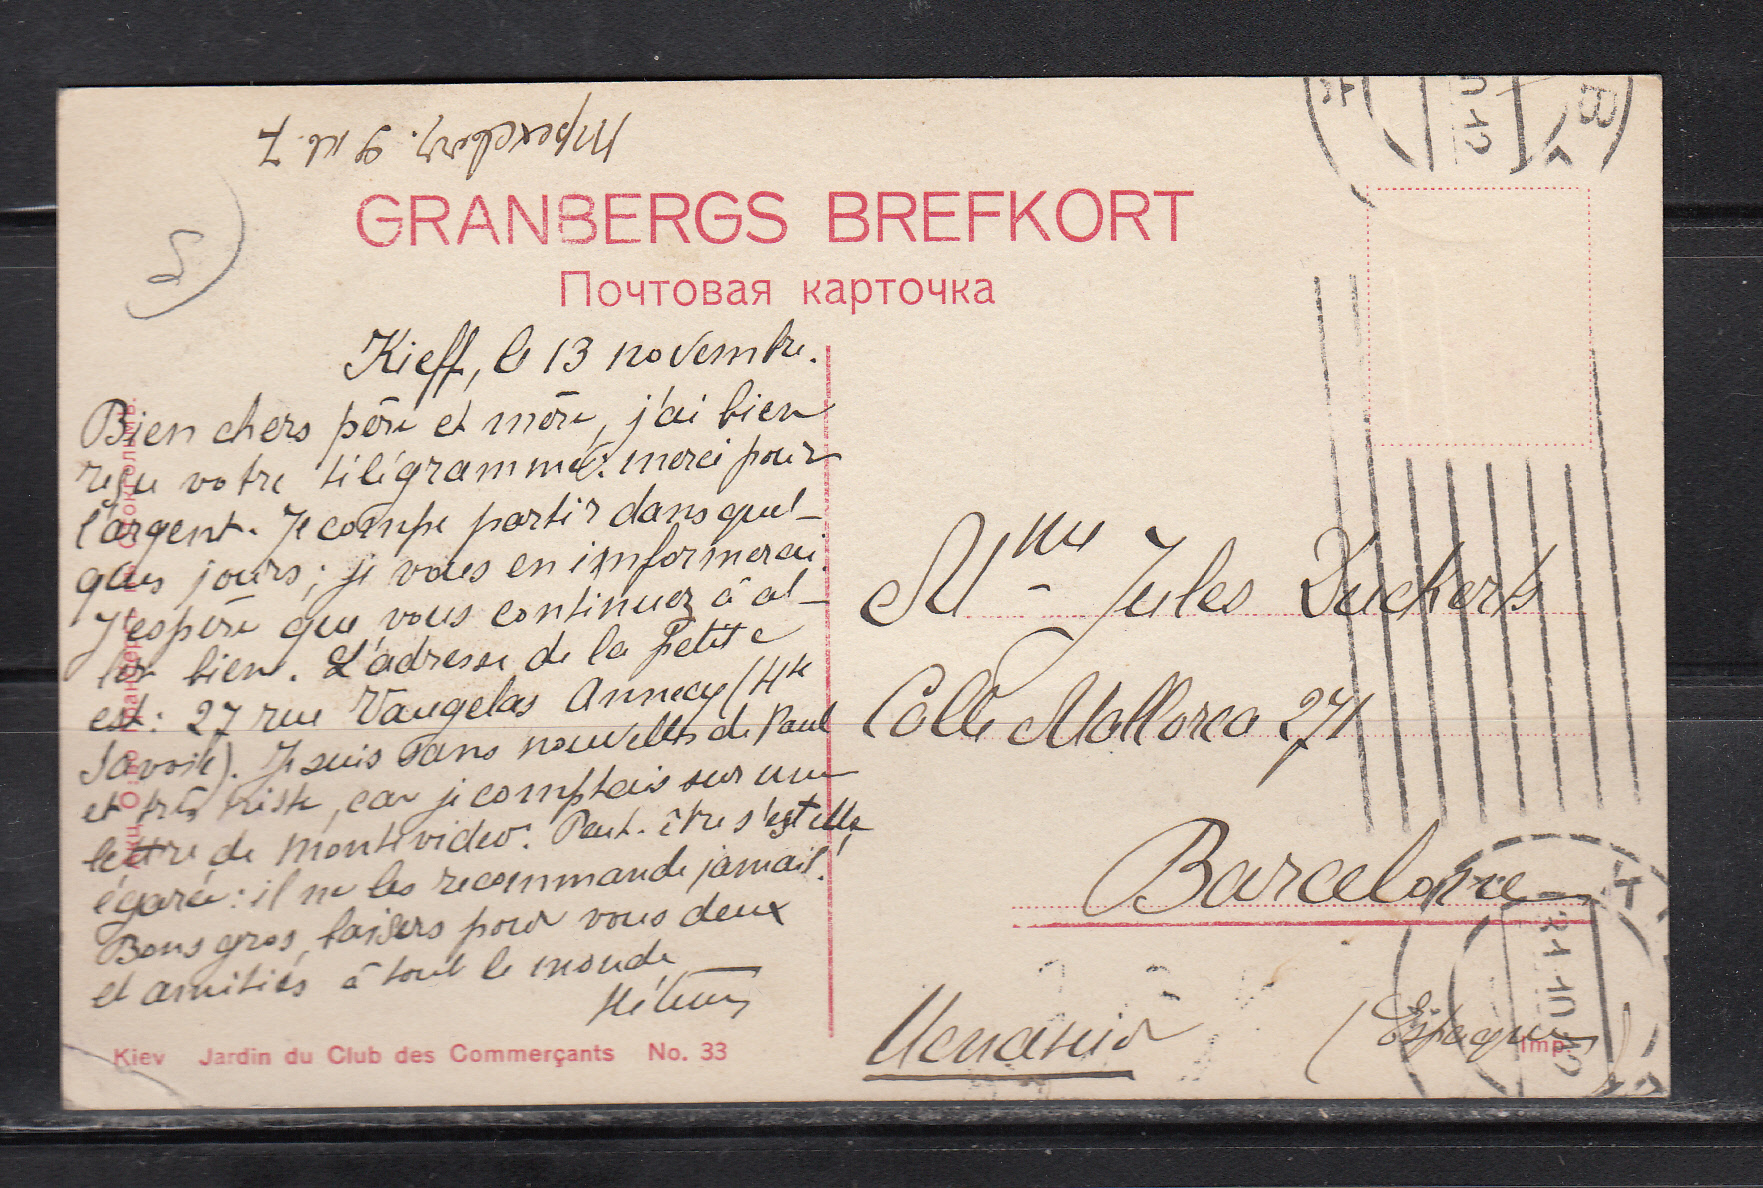 GRANBERGS BREFKORT
Почтовая карточка
Kieff, le 13 novembre.
Bien chers père et mère, j'ai bien
reçu votre télégramme: merci pour
l'argent. Je compte partir dans quel-
ques jours; je vous en informerai.
J'espère que vous continuez à al-
ler bien. L'adresse de la petite
est: 27 rue Vaugelas Annecy (Hte
Savoie). Je suis sans nouvelles de Paul
et très triste, car je comptais sur une
lettre de Montevideo. Peut-être s'est elle
égarée: il ne les recommande jamais!
Bons gros baisers pour vous deux
et amitiés à tout le monde
Kiev Jardin du Club des Commerçants No. 33
Mme Jules
Calle Mallorca 271
Barcelone
Испания (Espagne
Imp.